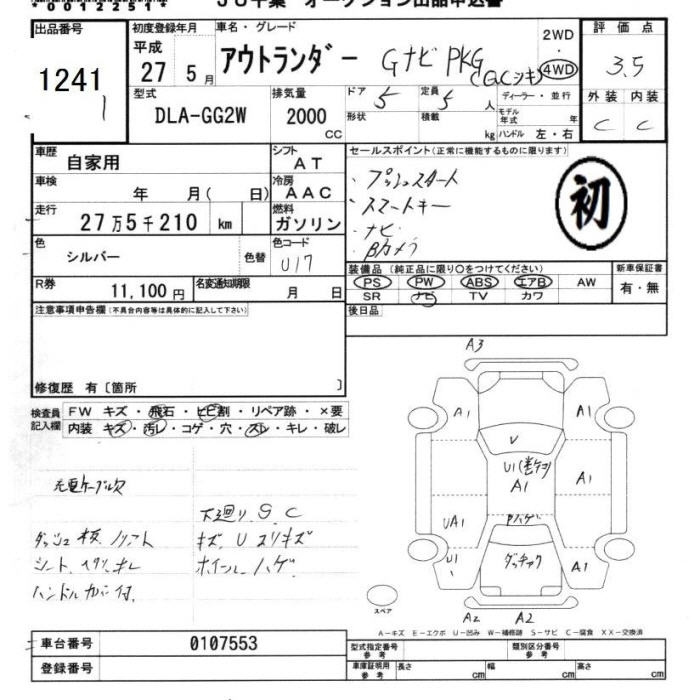 *00122514*
JU千葉 オークション出品申込書
出品番号
1241
初度登録年月
平成
27 5月
車名・グレード
アウトランダー Gナビ PKG
2WD
・
4WD
評価点
3.5
外装 内装
C C
型式
DLA-GG2W
排気量
2000
CC
ドア
5
定員
5
人
ディーラー・並行
形状
積載
kg
モデル
年式
年
ハンドル 左・右
車歴
自家用
シフト
AT
車検
年 月( 日)
冷房
AAC
走行
27万5千210 km
燃料
ガソリン
色
シルバー
色替
色コード
U17
R券
11,100円
名変通知期限
月 日
セールスポイント(正常に機能するものに限ります)
・プッシュスタート
・スマートキー
・ナビ
・Bカメラ
初
装備品 (純正品に限り○をつけてください)
PS PW ABS エアB AW
SR ナビ TV カワ
新車保証書
有・無
注意事項申告欄(不具合内容等は具体的に記入して下さい)
後日品
修復歴 有〔箇所 〕
検査員
記入欄
FW キズ・飛石・ヒビ割・リペア跡・×要
内装 キズ・汚レ・コゲ・穴・スレ・キレ・破レ
充電ケーブル欠
下廻り S C
キズ U スリキズ
ホイール ハゲ
A3
A1
A1
V
U1
A1
A1
UA1
U1
A1
A2
A2
スペア
A-キズ E-エクボ U-凹み W-補修跡 S-サビ C-腐食 XX-交換済
車台番号
0107553
登録番号
型式指定番号
参考
類別区分番号
参考
車庫証明用
参考
長さ
cm
幅
cm
高さ
cm